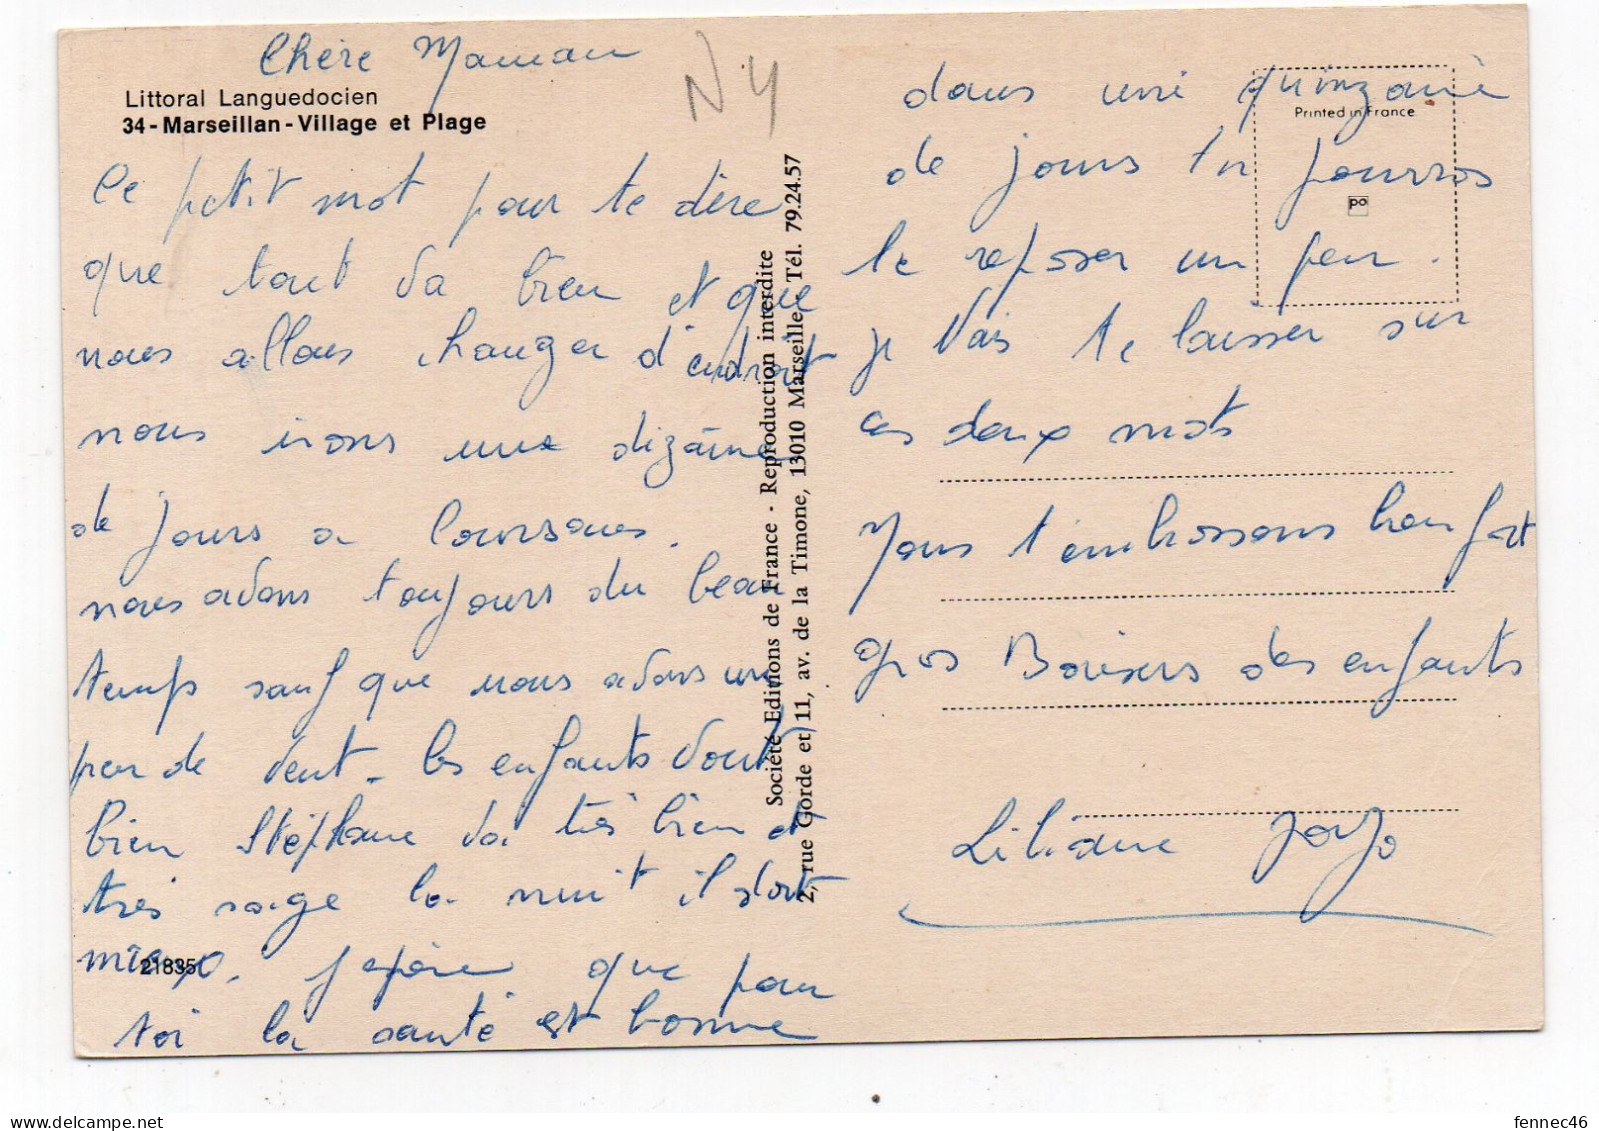 Chère Maman
N4
Littoral Languedocien
34-Marseillan-Village et Plage
Ce petit mot pour te dire
que tout va bien et que
nous allons changer d'endroit
nous irons une dizaine
de jours a Coursan.
nous avons toujours du beau
temps sauf que nous avons un
peu de vent. les enfants vont
bien Stéphane va très bien et
très sage la nuit il dort
mieux. j'espère que pour
toi la santé est bonne
21835
Société Editions de France - Reproduction interdite
2, rue Gorde et 11, av. de la Timone, 13010 Marseille Tél. 79.24.57
Printed in France
po
dans une quinzaine
de jours tu pourras
te reposer un peu.
je vais te laisser sur
ces deux mots
Nous t'embrassons bien fort
gros Baisers des enfants
Liliane JoJo
fennec46